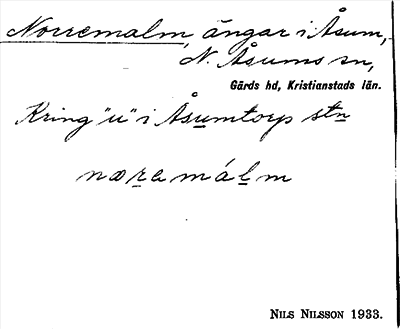 Norremalm, ängar i Åsum,
N. Åsums sn,
Gärds hd, Kristianstads län.
Kring "u" i Åsumtorp stn
nᴔɛmálm
NILS NILSSON 1933.